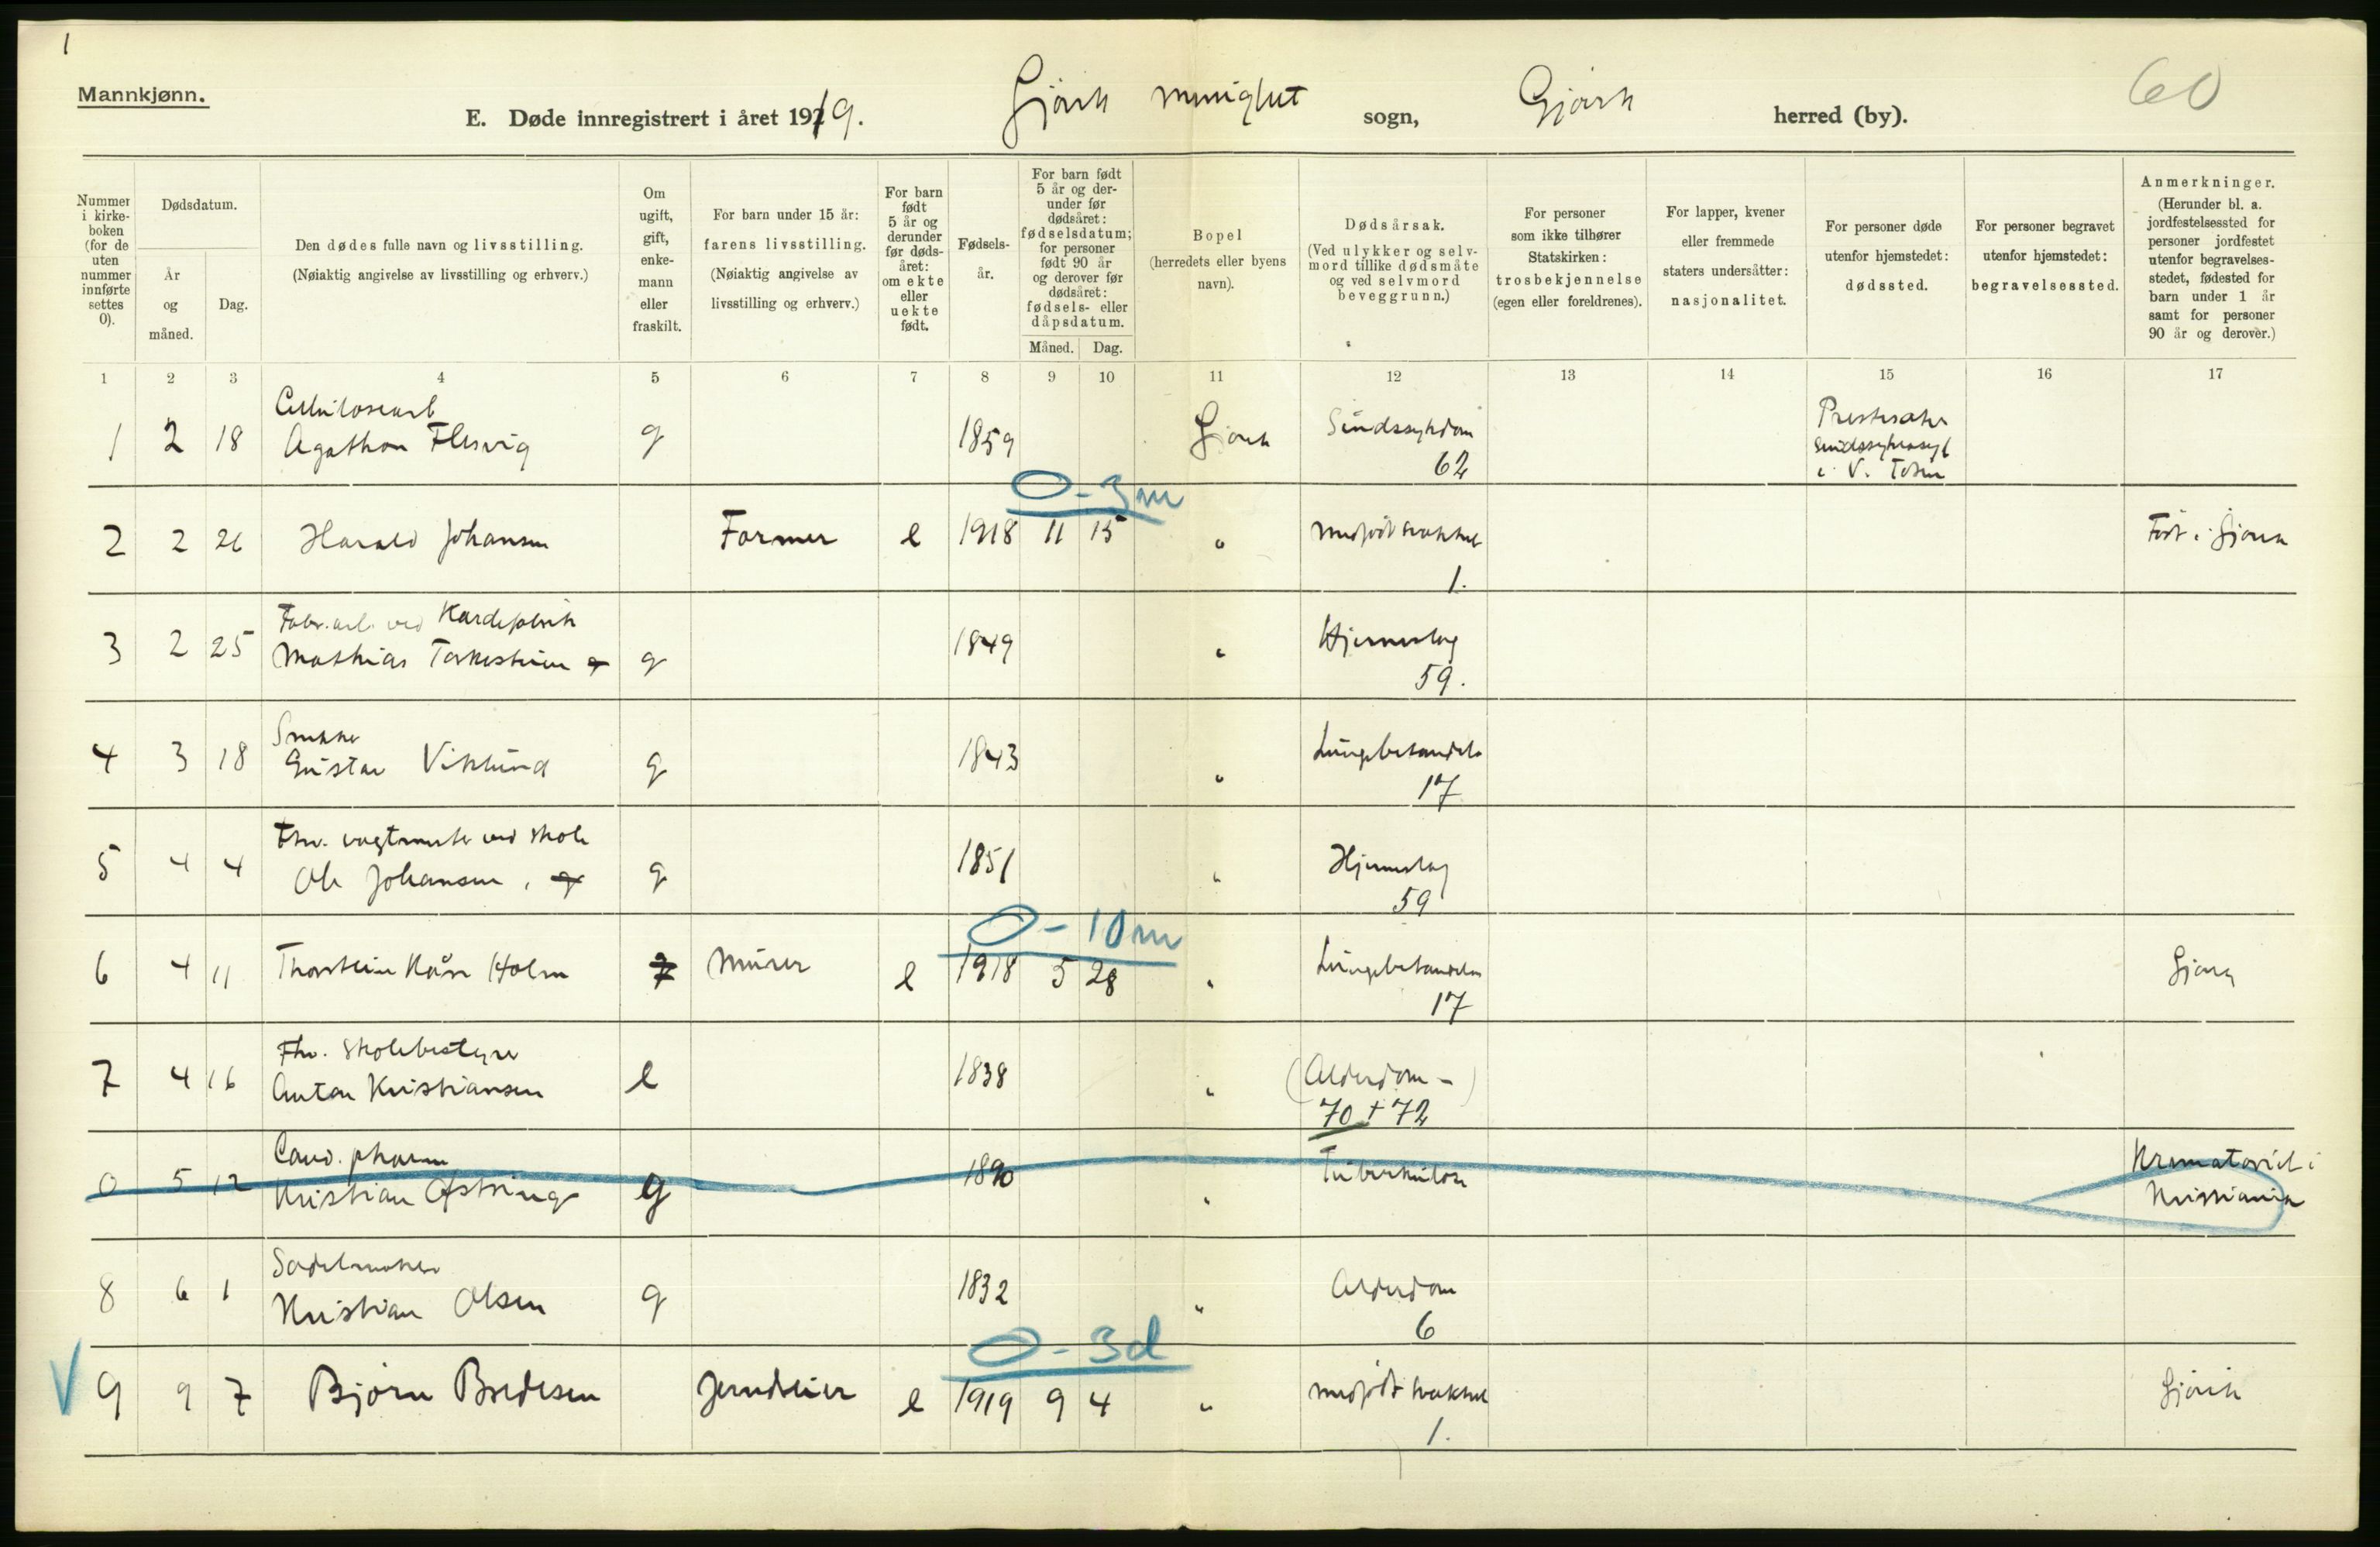 1
Mannkjønn.
E. Døde innregistrert i året 1919. Gjøvik menighet sogn, Gjøvik herred (by).
60
Nummer i kirkeboken (for de uten nummer innførte settes 0).
Dødsdatum.
År og måned.
Dag.
Den dødes fulle navn og livsstilling.
(Nøiaktig angivelse av livsstilling og erhverv.)
Om ugift, gift, enkemann eller fraskilt.
For barn under 15 år: farens livsstilling.
(Nøiaktig angivelse av livsstilling og erhverv.)
For barn født 5 år og derunder før dødsåret: om ekte eller uekte født.
Fødselsår.
For barn født 5 år og derunder før dødsåret: fødselsdatum; for personer født 90 år og derover før dødsåret: fødsels- eller dåpsdatum.
Måned. Dag.
Bopel
(herredets eller byens navn).
Dødsårsak.
(Ved ulykker og selvmord tillike dødsmåte og ved selvmord beveggrunn.)
For personer som ikke tilhører Statskirken: trosbekjennelse (egen eller foreldrenes).
For lapper, kvener eller fremmede staters undersåtter: nasjonalitet.
For personer døde utenfor hjemstedet: dødssted.
For personer begravet utenfor hjemstedet: begravelsessted.
Anmerkninger.
(Herunder bl. a. jordfestelsessted for personer jordfestet utenfor begravelsesstedet, fødested for barn under 1 år samt for personer 90 år og derover.)
1 2 3 4 5 6 7 8 9 10 11 12 13 14 15 16 17
Cellulosearb
1 2 18 Agathon Flesvig g 1859 Gjøvik Sindssykdom
62
Sindssykeasyl
i V. Toten
0 - 3 m
2 2 26 Harald Johansen Former e 1918 11 15 " medfødt svakhet
1.
Født i Gjøvik
Fabr.arb. ved Kardefabrik
3 2 25 Mathias g 1849 " Hjerneslag
59.
Snekker
4 3 18 Gustav Viklund g 1843 " Lungebetændelse
17
Fhv. vagtmester ved skole
5 4 4 Ole Johansen, g 1851 " Hjerneslag
59
0 - 10 m
6 4 11 Thorstein Kåre Holm Murer e 1918 5 28 " Lungebetændelse
17
Gjøvik
Fhv. Skolebestyrer
7 4 16 Anton Kristiansen e 1838 " (Alderdom -)
70 + 72
Cand. pharm
0 5 12 Kristian g 1890 " Tuberkulose
Krematoriet i
Kristiania
Sadelmaker
8 6 1 Kristian Olsen g 1832 " Alderdom
6
0 - 3 d
V 9 9 7 Bjørn Bredesen Jerndreier e 1919 9 4 " medfødt svakhet
1.
Gjøvik